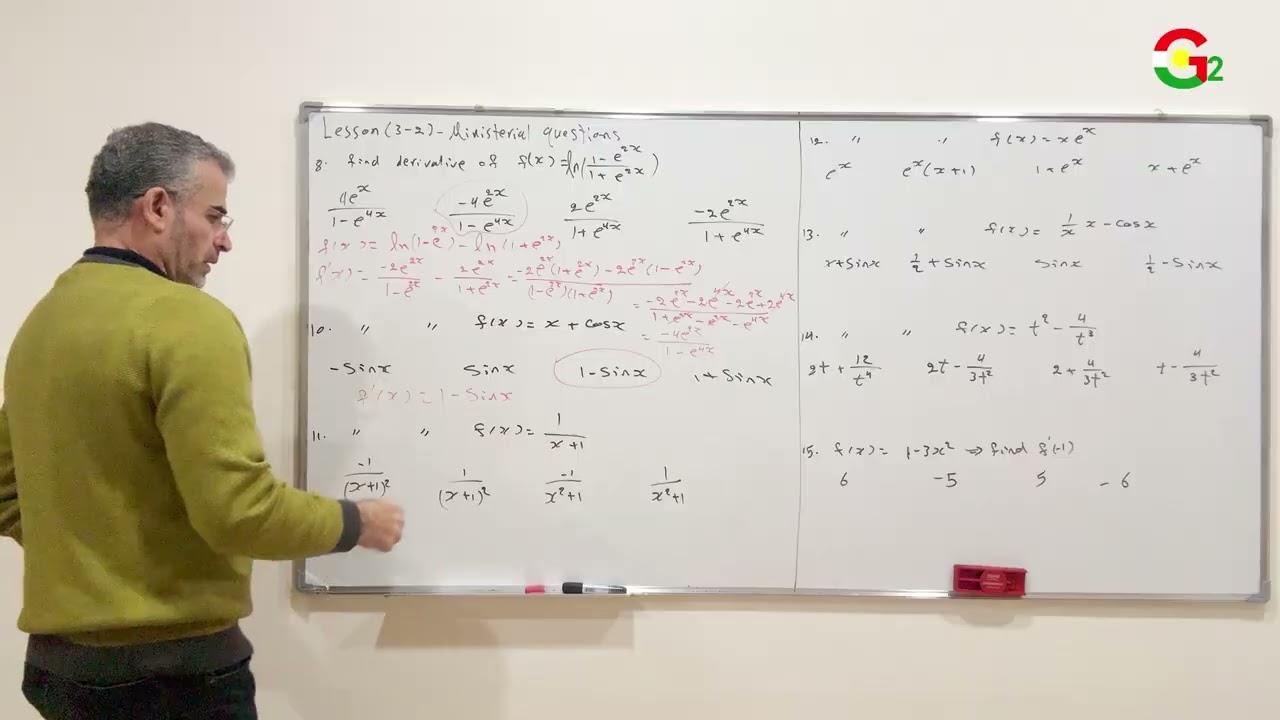 G2
Lesson (3-2) - Ministerial questions
8. find derivative of f(x) = ln((1-e^2x)/(1+e^2x))
4e^x/(1-e^4x)   -4e^2x/(1-e^4x)   2e^2x/(1+e^4x)   -2e^2x/(1+e^4x)
f(x) = ln(1-e^2x) - ln(1+e^2x)
f'(x) = -2e^2x/(1-e^2x) - 2e^2x/(1+e^2x) = (-2e^2x(1+e^2x) - 2e^2x(1-e^2x))/((1-e^2x)(1+e^2x))
= (-2e^2x - 2e^4x - 2e^2x + 2e^4x)/(1+e^2x - e^2x - e^4x)
= -4e^2x/(1-e^4x)
10. " " f(x) = x + cosx
-sinx   sinx   1-sinx   1+sinx
f'(x) = 1-sinx
11. " " f(x) = 1/(x+1)
-1/(x+1)²   1/(x+1)²   -1/(x²+1)   1/(x²+1)
12. " " f(x) = x e^x
e^x   e^x(x+1)   1+e^x   x+e^x
13. " " f(x) = 1/x x - cosx
x+sinx   1/2 + sinx   sinx   1/2 - sinx
14. " " f(x) = t² - 4/t³
2t + 12/t⁴   2t - 4/3t²   2 + 4/3t²   t - 4/3t²
15. f(x) = 1-3x² ⇒ find f'(-1)
6   -5   5   -6